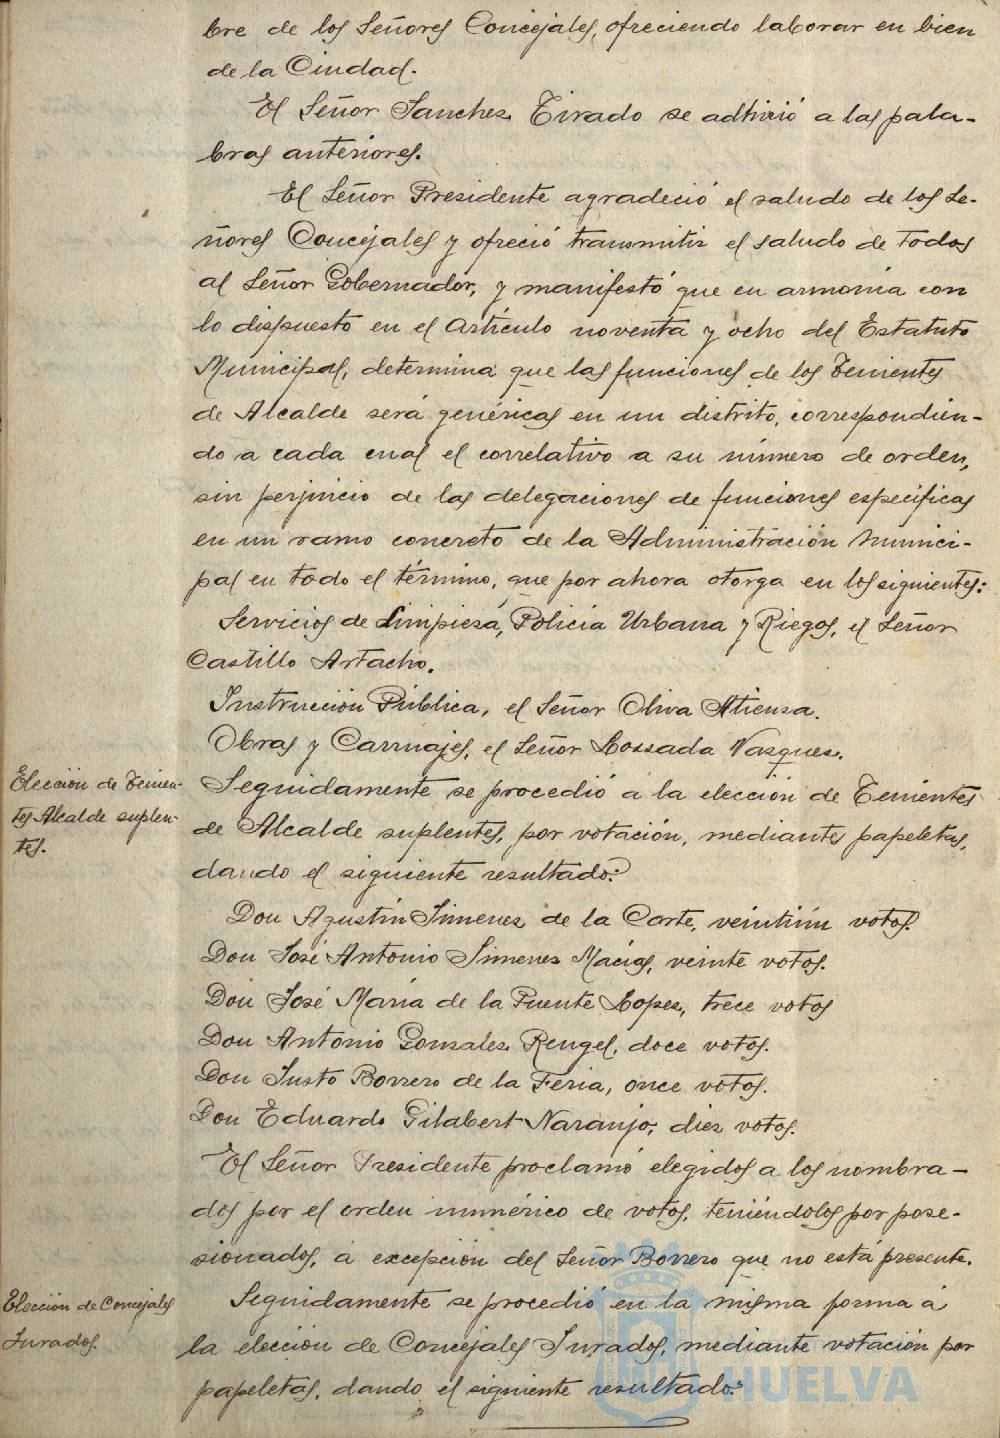 bre de los Señores Concejales, ofreciendo laborar en bien
de la Ciudad.
El Señor Sanchez Tirado se adhirió a las pala-
bras anteriores.
El Señor Presidente agradeció el saludo de los Se-
ñores Concejales y ofreció transmitir el saludo de todos
al Señor Gobernador, y manifestó que en armonía con
lo dispuesto en el artículo noventa y ocho del Estatuto
Municipal, determina que las funciones de los Tenientes
de Alcalde será genéricas en un distrito, correspondien-
do a cada cual el correlativo a su número de orden,
sin perjuicio de las delegaciones de funciones específicas
en un ramo concreto de la Administración Munici-
pal en todo el término, que por ahora otorga en los siguientes:
Servicios de Limpieza, Policía Urbana y Riegos, el Señor
Castillo Artacho.
Instrucción Pública, el Señor Oliva Atienza.
Obras y Carruajes, el Señor Lossada Vazquez.
Elección de Tenien-
tes Alcalde suplen-
tes.
Seguidamente se procedió a la elección de Tenientes
de Alcalde suplentes, por votación, mediantes papeletas,
dando el siguiente resultado:
Don Agustín Jimenez de la Corte, veintiún votos.
Don José Antonio Jimenez Macías, veinte votos.
Don José María de la Puente Lopez, trece votos
Don Antonio Gonzalez Rengel, doce votos.
Don Justo Borrero de la Feria, once votos.
Don Eduardo Gilabert Naranjo, diez votos.
El Señor Presidente proclamó elegidos a los nombra-
dos por el orden numérico de votos, teniéndolos por pose-
sionados, a excepción del Señor Borrero que no está presente.
Elección de Concejales
Jurados.
Seguidamente se procedió en la misma forma á
la elección de Concejales Jurados, mediante votación por
papeletas, dando el siguiente resultado:
HUELVA